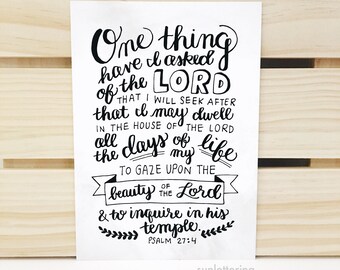 One thing
have I asked
of the LORD
THAT I WILL SEEK AFTER
that I may dwell
IN THE HOUSE OF THE LORD
all the days of my life
TO GAZE UPON THE
beauty OF THE Lord
& to inquire in his
temple.
PSALM 27:4